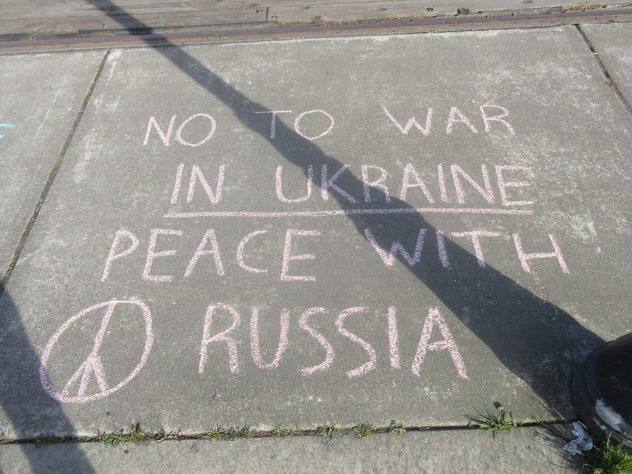 NO TO WAR
IN UKRAINE
PEACE WITH
RUSSIA